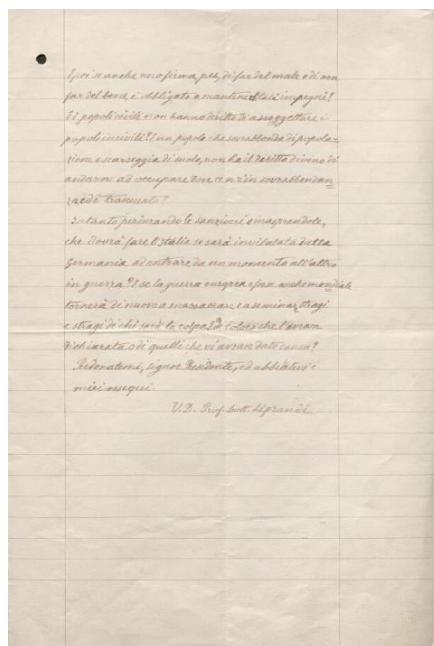 E poi se anche uno firma, p. es. di far del male o di non
far del bene, è obbligato a mantenere tali impegni?
E i popoli civili non hanno diritto di assoggettare i
popoli incivili? E un popolo che sovrabbonda di popola-
zione e scarseggia di suolo, non ha il diritto divino di
andarne ad occupare dove ce n'è in sovrabbondan
za ed è trascurato?
Intanto perdurando le sanzioni e inasprendole,
che dovrà fare l'Italia se sarà invitata dalla
Germania ad entrare da un momento all'altro
in guerra? E se la guerra europea e forse anche mondiale
tornerà di nuovo a massacrare e a seminar stragi
e stragi di chi sarà la colpa? Di coloro che l'avran
dichiarata o di quelli che vi avran dato causa?
Perdonatemi, signor Presidente, ed abbiatevi i
miei ossequi.
V. D. Prof. Dott. Liprandi